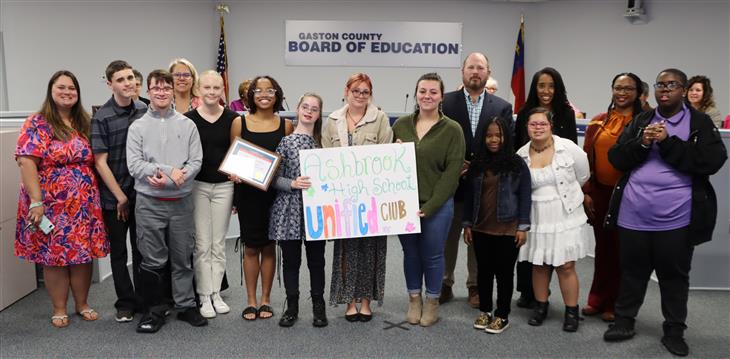 GASTON COUNTY
BOARD OF EDUCATION
ASHBROOK
High School
Unified CLUB